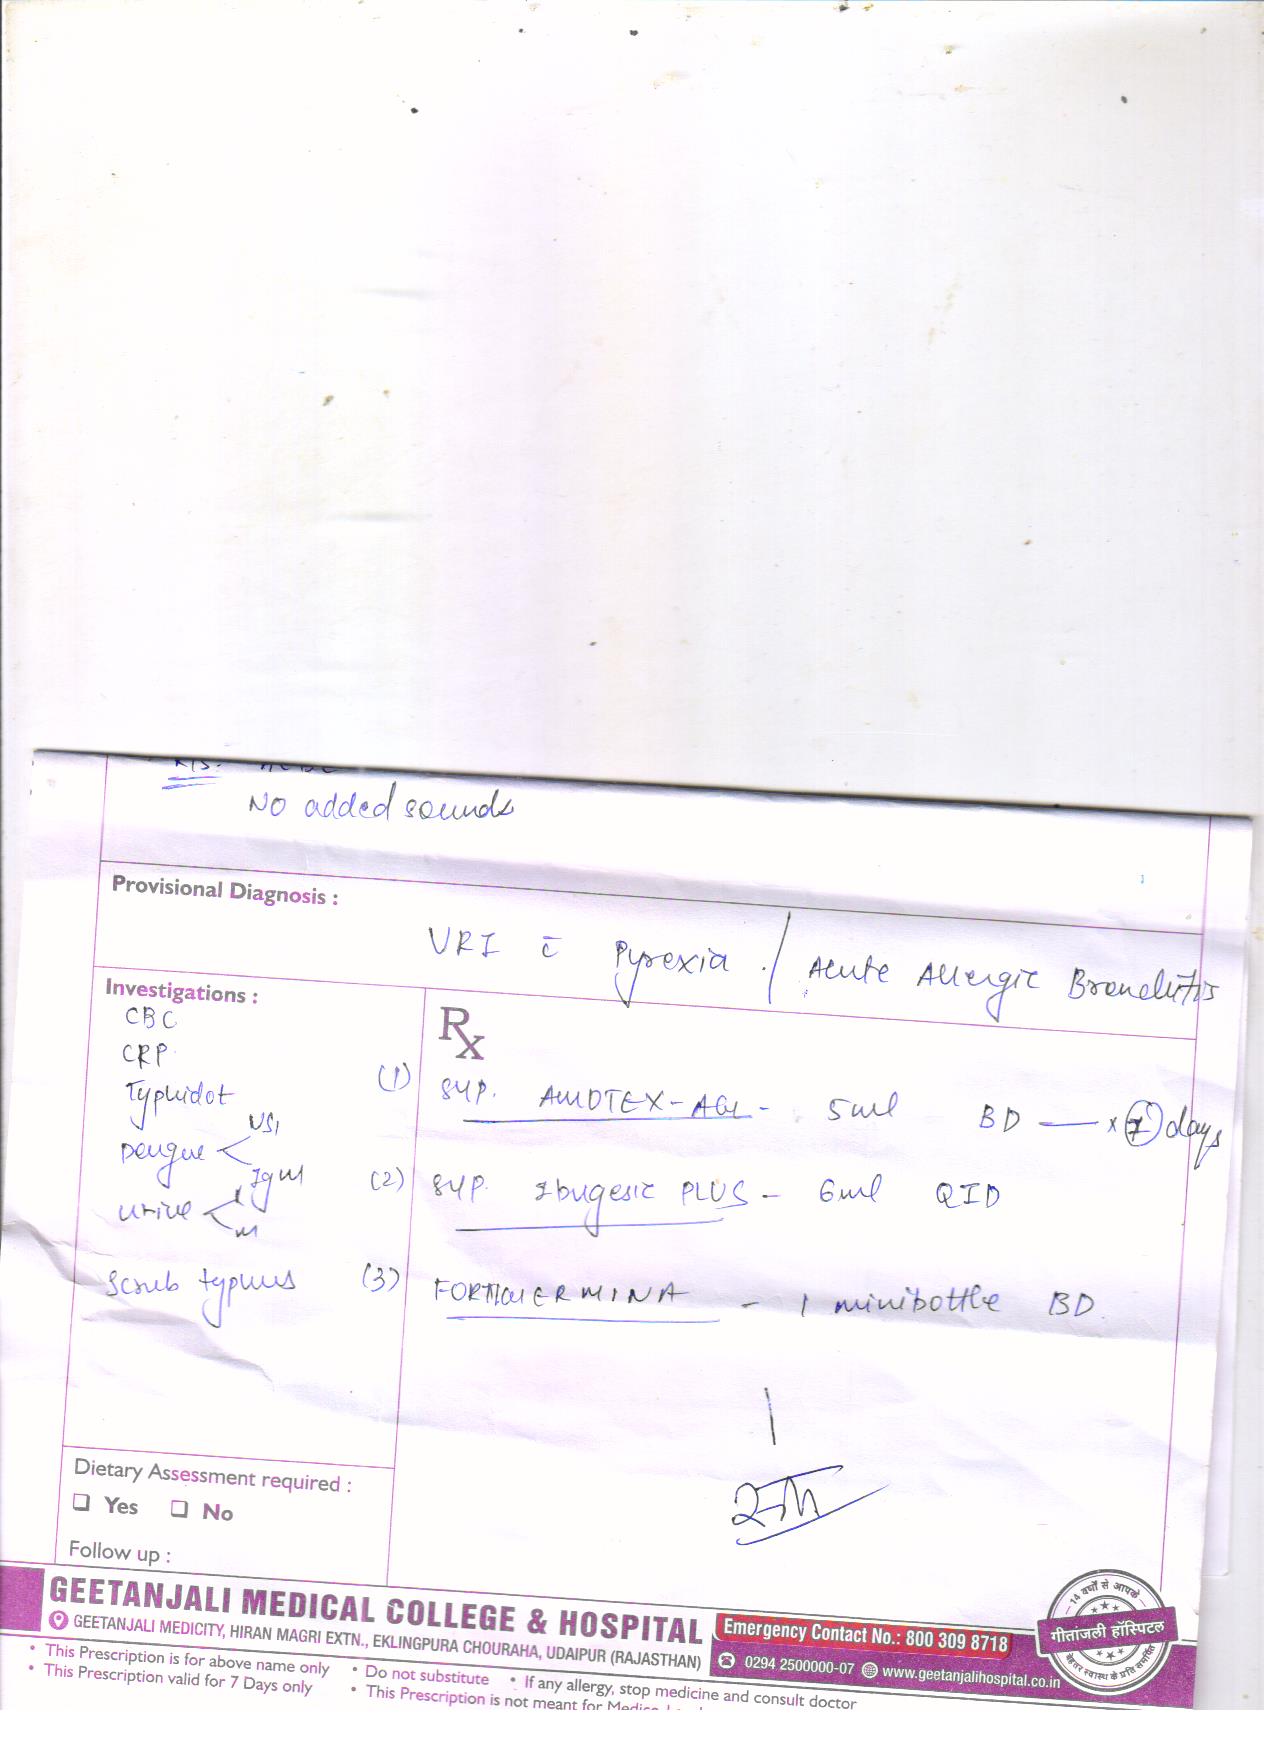 No added sounds
Provisional Diagnosis :
URI c̄ Pyrexia . / Acute Allergic Bronchitis
Investigations :
CBC
CRP
Typhidot
Dengue < NS1
IgM
urine <
m
Scrub typhus
Rx
(1) SYP. - 5ml BD — x 7 days
(2) SYP. Ibugesic PLUS - 6ml QID
(3) - 1 minibottle BD.
Dietary Assessment required :
❑ Yes ❑ No
Follow up :
GEETANJALI MEDICAL COLLEGE & HOSPITAL
GEETANJALI MEDICITY, HIRAN MAGRI EXTN., EKLINGPURA CHOURAHA, UDAIPUR (RAJASTHAN)
Emergency Contact No.: 800 309 8718
0294 2500000-07 www.geetanjalihospital.co.in
14 वर्षों से आपके
गीतांजली हॉस्पिटल
बेहतर स्वास्थ्य के प्रति समर्पित
• This Prescription is for above name only • Do not substitute • If any allergy, stop medicine and consult doctor
• This Prescription valid for 7 Days only • This Prescription is not meant for